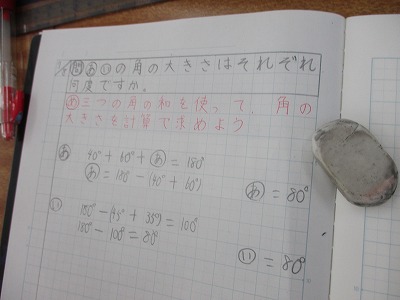 問 あ い の角の大きさはそれぞれ
何度ですか。
め 三つの角の和を使って、角の
大きさを計算で求めよう
あ 40°+60°+あ=180°
あ=180°-(40°+60°)
あ=80°
い 180°-(45°+35°)=100°
180°-100°=80°
い=80°